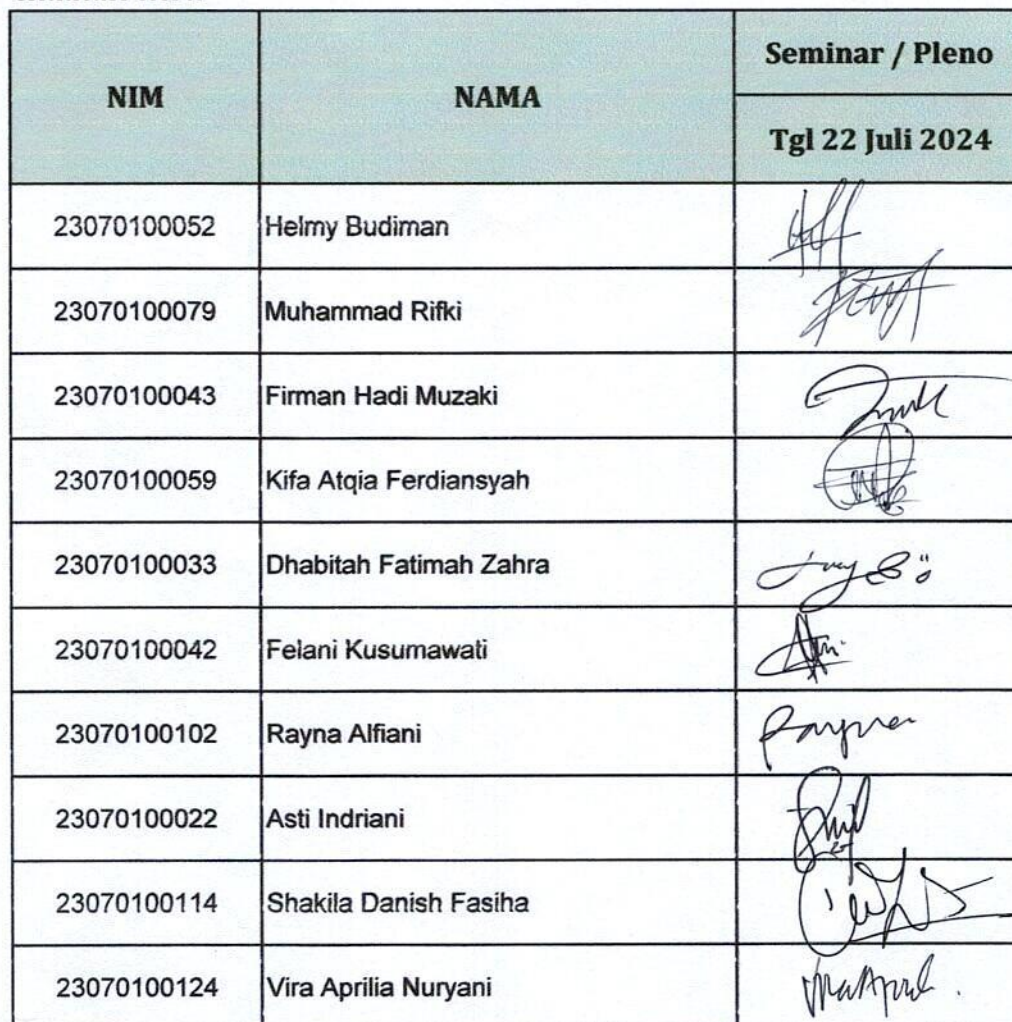 NIM NAMA Seminar / Pleno
Tgl 22 Juli 2024
23070100052 Helmy Budiman
23070100079 Muhammad Rifki
23070100043 Firman Hadi Muzaki
23070100059 Kifa Atqia Ferdiansyah
23070100033 Dhabitah Fatimah Zahra
23070100042 Felani Kusumawati
23070100102 Rayna Alfiani Rayna
23070100022 Asti Indriani
23070100114 Shakila Danish Fasiha
23070100124 Vira Aprilia Nuryani